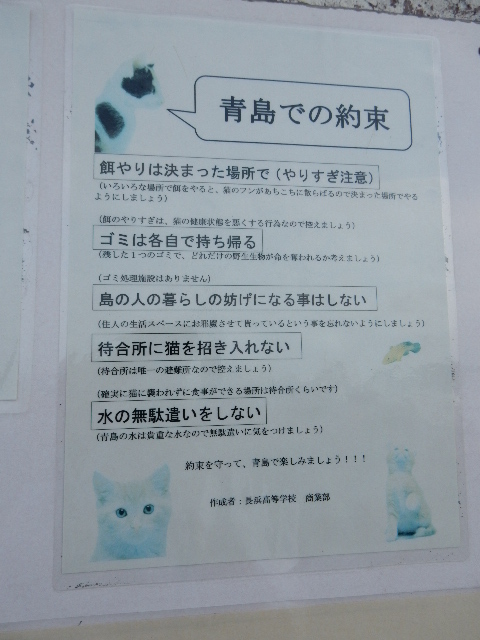 青島での約束
餌やりは決まった場所で（やりすぎ注意）
（いろいろな場所で餌をやると、猫のフンがあちこちに散らばるので決まった場所でやる
ようにしましょう）
（餌のやりすぎは、猫の健康状態を悪くする行為なので控えましょう）
ゴミは各自で持ち帰る
（残した１つのゴミで、どれだけの野生生物が命を奪われるか考えましょう）
（ゴミ処理施設はありません）
島の人の暮らしの妨げになる事はしない
（住人の生活スペースにお邪魔させて貰っているという事を忘れないようにしましょう）
待合所に猫を招き入れない
（待合所は唯一の避難所なので控えましょう）
（確実に猫に襲われずに食事ができる場所は待合所くらいです）
水の無駄遣いをしない
（青島の水は貴重な水なので無駄遣いに気をつけましょう）
約束を守って、青島で楽しみましょう！！！
作成者：長浜高等学校　商業部